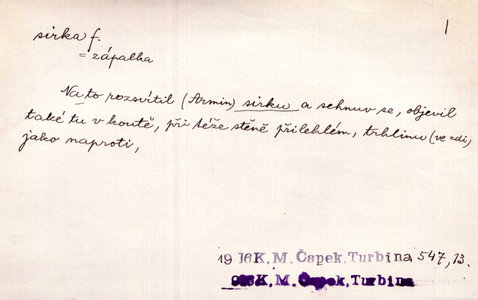 1
sirka f.
= zápalka
Na to rozsvítil (Armin) sirku a sehnuv se, objevil
také tu v koutě, při téže stěně přilehlém, trhlinu (ve zdi,
jako naproti,
19 16 K. M. Čapek, Turbina 547, 13.
916 K. M. Čapek, Turbina